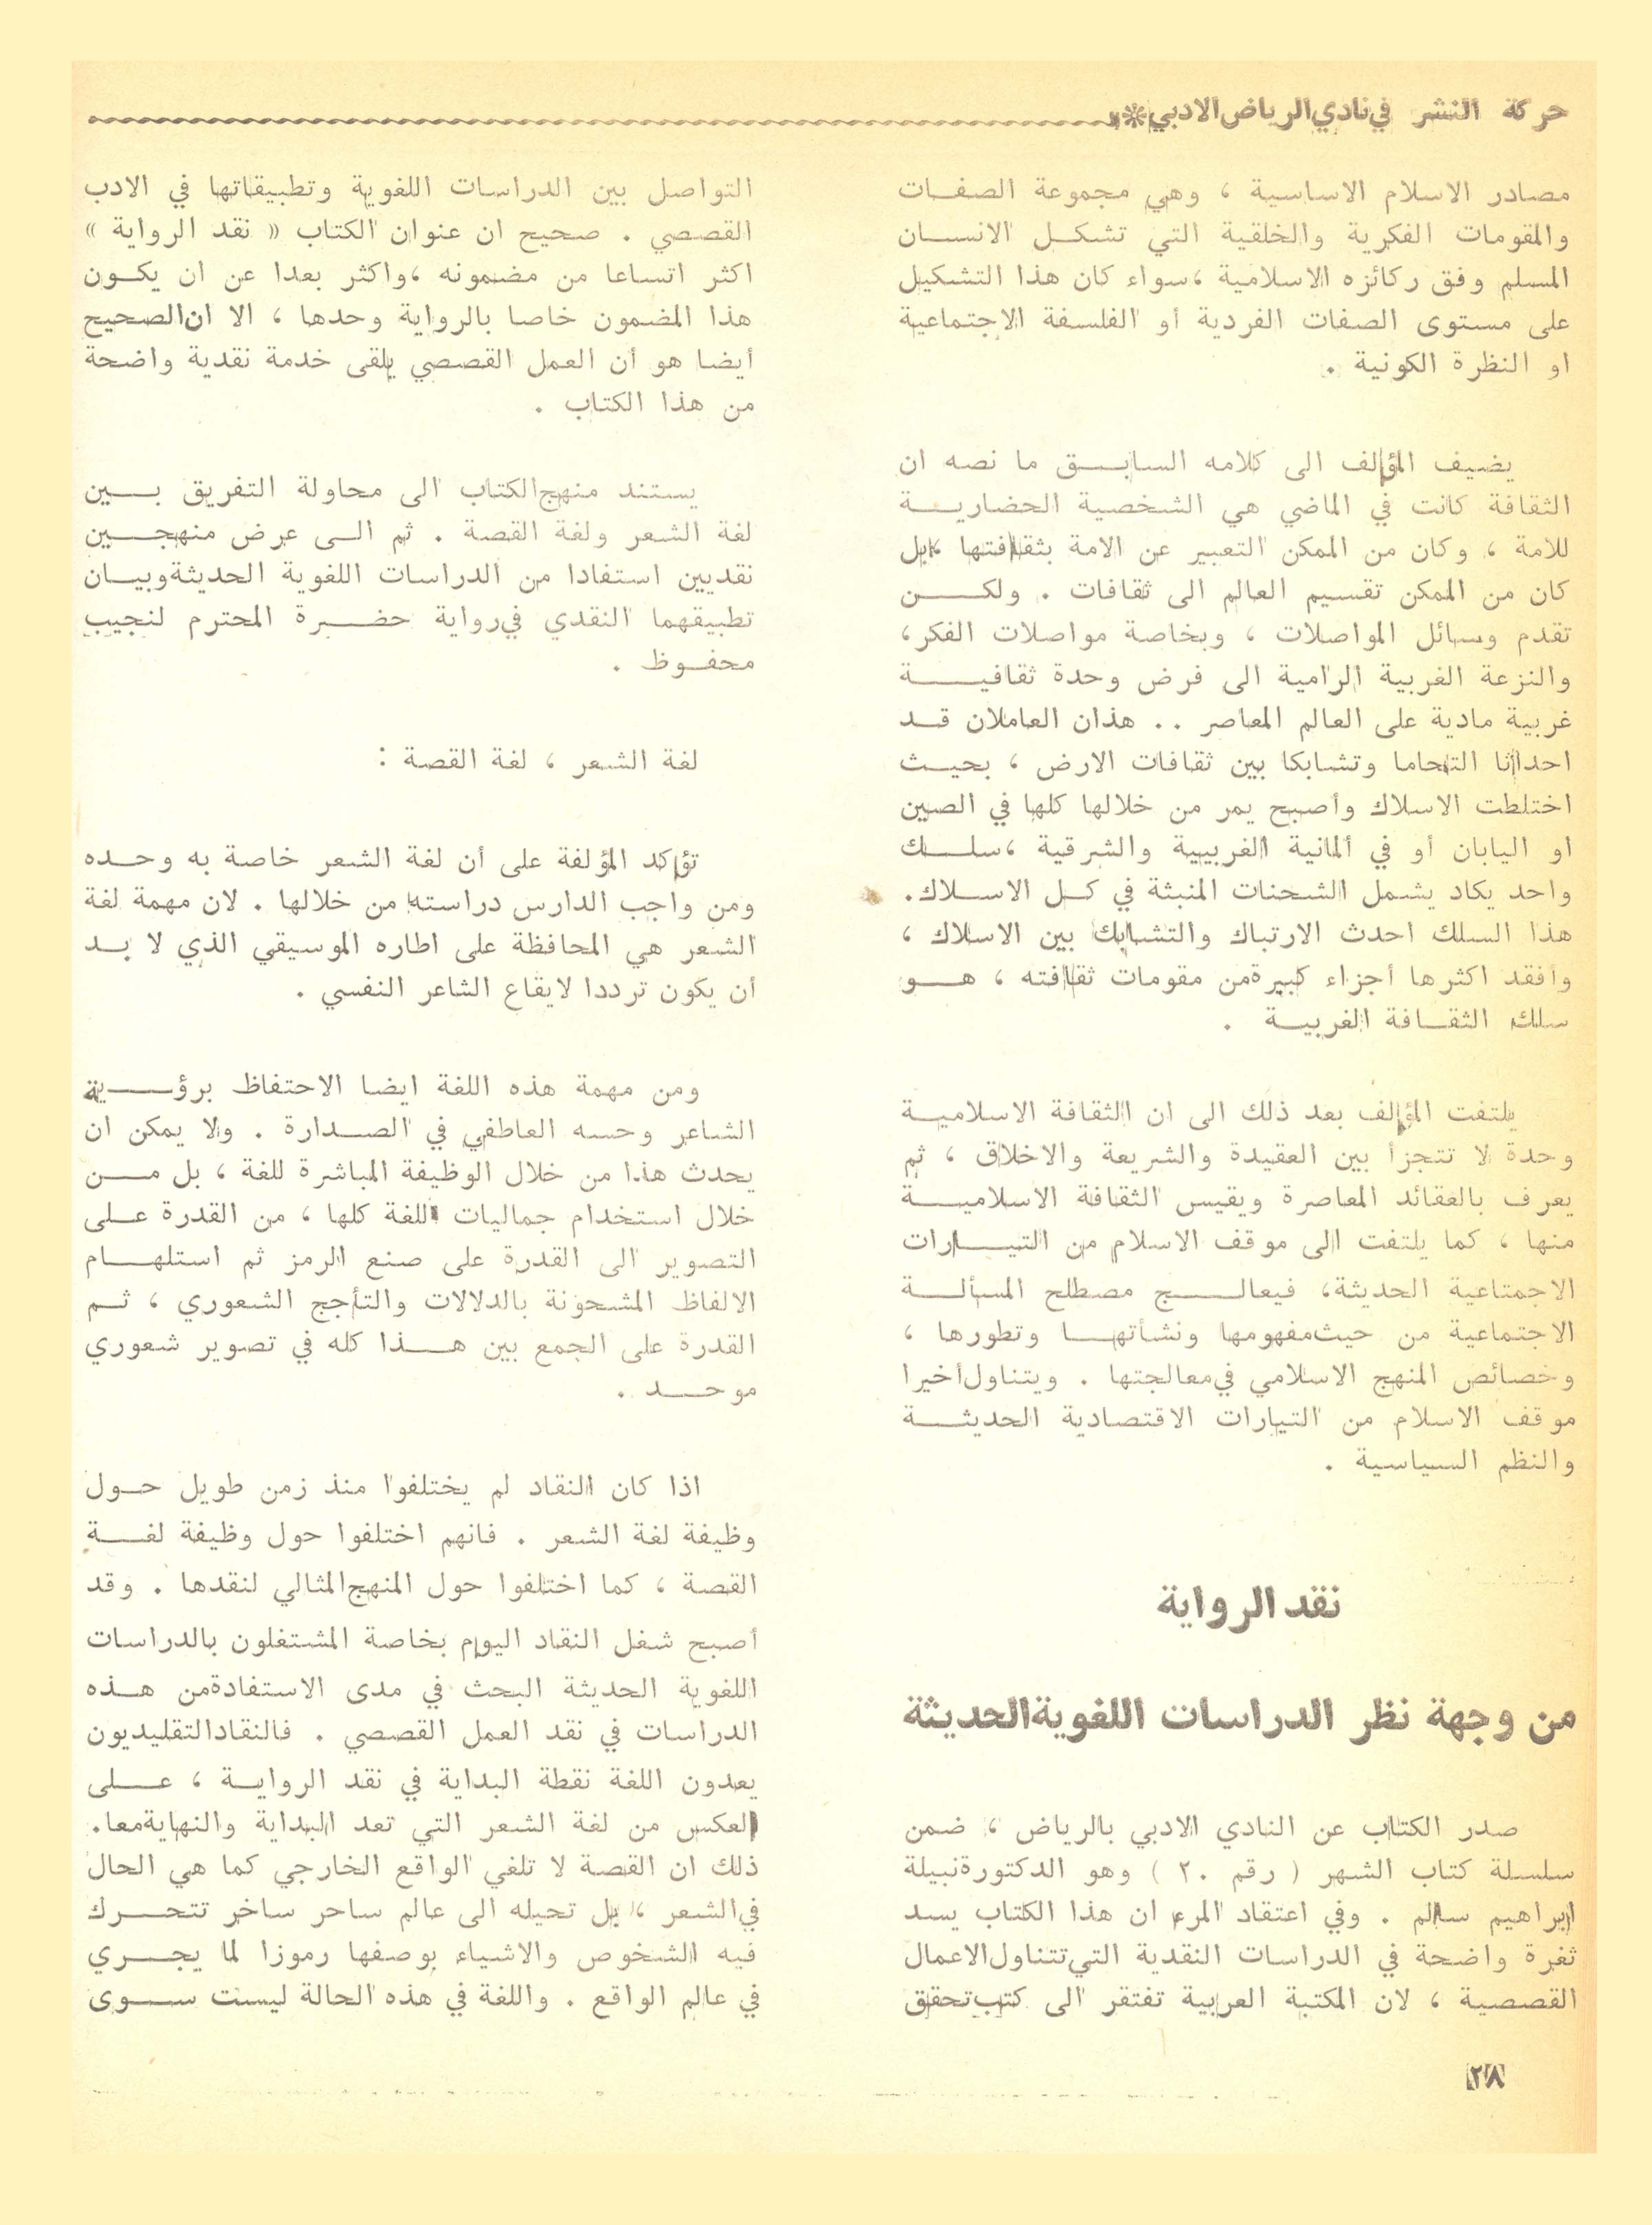 حركة النشر في نادي الرياض الادبي
مصادر الاسلام الاساسية ، وهي مجموعة الصفات
والمقومات الفكرية والخلقية التي تشكل الانسان
المسلم وفق ركائزه الاسلامية ،سواء كان هذا التشكيل
على مستوى الصفات الفردية أو الفلسفة الاجتماعية
او النظرة الكونية .
يضيف المؤلف الى كلامه السابق ما نصه ان
الثقافة كانت في الماضي هي الشخصية الحضارية
للامة ، وكان من الممكن التعبير عن الامة بثقافتها ،بل
كان من الممكن تقسيم العالم الى ثقافات . ولكن
تقدم وسائل المواصلات ، وبخاصة مواصلات الفكر،
والنزعة الغربية الرامية الى فرض وحدة ثقافية
غربية مادية على العالم المعاصر .. هذان العاملان قد
احداثا التحاما وتشابكا بين ثقافات الارض ، بحيث
اختلطت الاسلاك وأصبح يمر من خلالها كلها في الصين
او اليابان أو في ألمانية الغربيية والشرقية ،سلك
واحد يكاد يشمل الشحنات المنبثة في كل الاسلاك.
هذا السلك احدث الارتباك والتشابك بين الاسلاك ،
وأفقد اكثرها أجزاء كبيرةمن مقومات ثقافته ، هو
سلك الثقافة الغربية .
يلتفت المؤلف بعد ذلك الى ان الثقافة الاسلامية
وحدة لا تتجزأ بين العقيدة والشريعة والاخلاق ، ثم
يعرف بالعقائد المعاصرة ويقيس الثقافة الاسلامية
منها ، كما يلتفت الى موقف الاسلام من التيارات
الاجمتاعية الحديثة، فيعالج مصطلح المسألة
الاجتماعية من حيث مفهومها ونشأتها وتطورها ،
وخصائص المنهج الاسلامي في معالجتها . ويتناول أخيرا
موقف الاسلام من التيارات الاقتصادية الحديثة
والنظم السياسية .
نقد الرواية
من وجهة نظر الدراسات اللغوية الحديثة
صدر الكتاب عن النادي الادبي بالرياض ، ضمن
سلسلة كتاب الشهر ( رقم ٢٠ ) وهو الدكتورة نبيلة
ابراهيم سالم . وفي اعتقاد المرء ان هذا الكتاب يسد
ثغرة واضحة في الدراسات النقدية التي تتناول الاعمال
القصصية ، لان المكتبة العربية تفتقر الى كتب تحقق
التواصل بين الدراسات اللغوية وتطبيقاتها في الادب
القصصي . صحيح ان عنوان الكتاب « نقد الرواية »
اكثر اتساعا من مضمونه ،واكثر بعدا عن ان يكون
هذا المضمون خاصا بالرواية وحدها ، الا ان الصحيح
أيضا هو أن العمل القصصي يلقى خدمة نقدية واضحة
من هذا الكتاب .
يستند منهج الكتاب الى محاولة التفريق بين
لغة الشعر ولغة القصة . ثم الى عرض منهجين
نقديين استفادا من الدراسات اللغوية الحديثة وبيان
تطبيقهما النقدي في رواية حضرة المحترم لنجيب
محفوظ .
لغة الشعر ، لغة القصة :
تؤكد المؤلفة على أن لغة الشعر خاصة به وحده
ومن واجب الدارس دراسته من خلالها . لان مهمة لغة
الشعر هي المحافظة على اطاره الموسيقي الذي لا بد
أن يكون ترددا لايقاع الشاعر النفسي .
ومن مهمة هذه اللغة ايضا الاحتفاظ برؤية
الشاعر وحسه العاطفي في الصدارة . ولا يمكن ان
يحدث هذا من خلال الوظيفة المباشرة للغة ، بل من
خلال استخدام جماليات اللغة كلها ، من القدرة على
التصوير الى القدرة على صنع الرمز ثم استلهام
الالفاظ المشحونة بالدلالات والتأجج الشعوري ، ثم
القدرة على الجمع بين هذا كله في تصوير شعوري
موحد .
اذا كان النقاد لم يختلفوا منذ زمن طويل حول
وظيفة لغة الشعر . فانهم اختلفوا حول وظيفة لغة
القصة ، كما اختلفوا حول المنهج المثالي لنقدها . وقد
أصبح شغل النقاد اليوم بخاصة المشتغلون بالدراسات
اللغوية الحديثة البحث في مدى الاستفادةمن هذه
الدراسات في نقد العمل القصصي . فالنقاد التقليديون
يعدون اللغة نقطة البداية في نقد الرواية ، على
العكس من لغة الشعر التي تعد البداية والنهاية معا.
ذلك ان القصة لا تلغي الواقع الخارجي كما هي الحال
في الشعر ، بل تحيله الى عالم ساحر ساخر تتحرك
فيه الشخوص والاشياء بوصفها رموزا لما يجري
في عالم الواقع . واللغة في هذه الحالة ليست سوى
٢٨